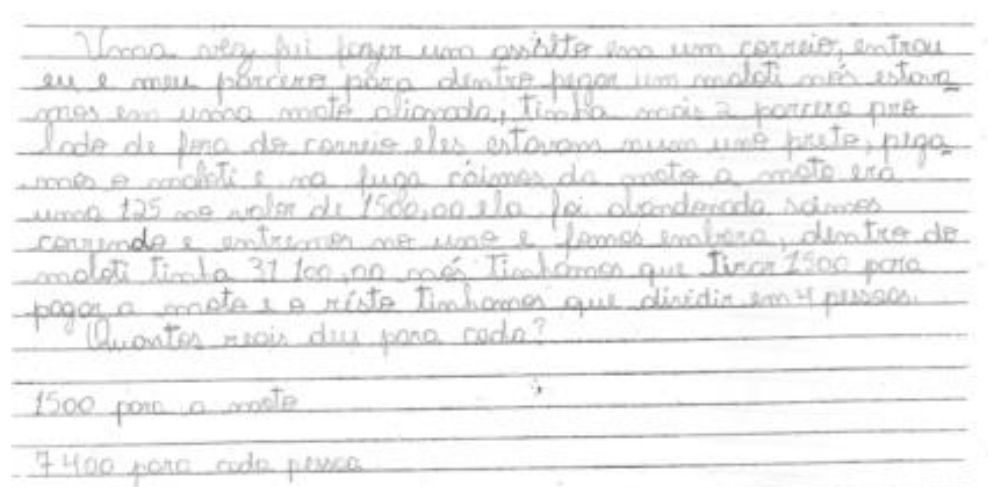 Uma vez fui fazer um assalto em um correio, entrou
eu e meu parcero para dentro pegar um maloti nós estava-
mos em uma moto alienada, tinha mais 2 parcero pro
lado de fora do correio eles estavam num uno preto, pega-
mos o maloti e na fuga caímos da moto a moto era
uma 125 no valor de 1500,00 ela foi abandonada saimos
correndo e entremos no uno e fomos embora, dentro do
maloti tinha 31 100,00 nós tinhamos que tirar 1500 para
pagar a moto e o résto tinhamos que dividir em 4 pessoas.
Quantos reais deu para cada?
1500 para a moto
7400 para cada pessoa